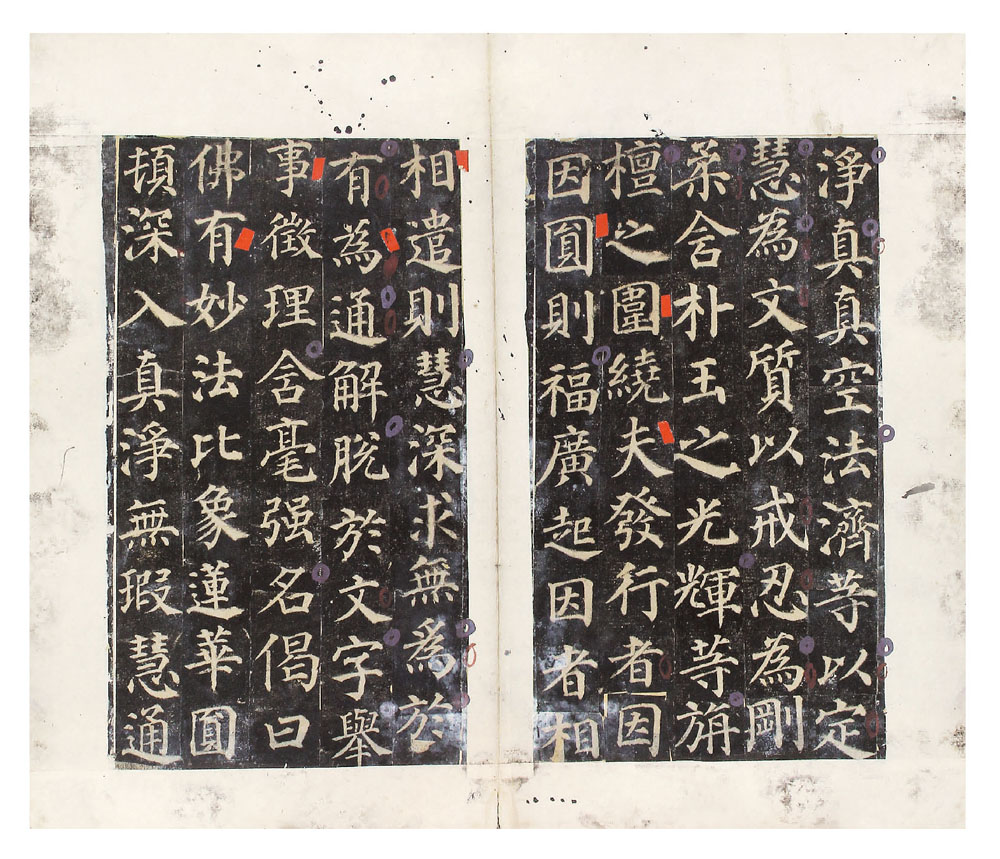 淨真真空法濟等以定
慧為文質以戒忍為剛
柔含朴玉之光輝等旃
檀之圍繞夫發行者因
因圓則福廣起因者相
相遣則慧深求無為於
有為通解脫於文字舉
事徵理含毫强名偈曰
佛有妙法比象蓮華圓
頓深入真淨無瑕慧通